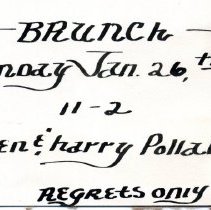 BRUNCH
nday Jan. 26, th
11-2
en & Harry Polla
REGRETS ONLY